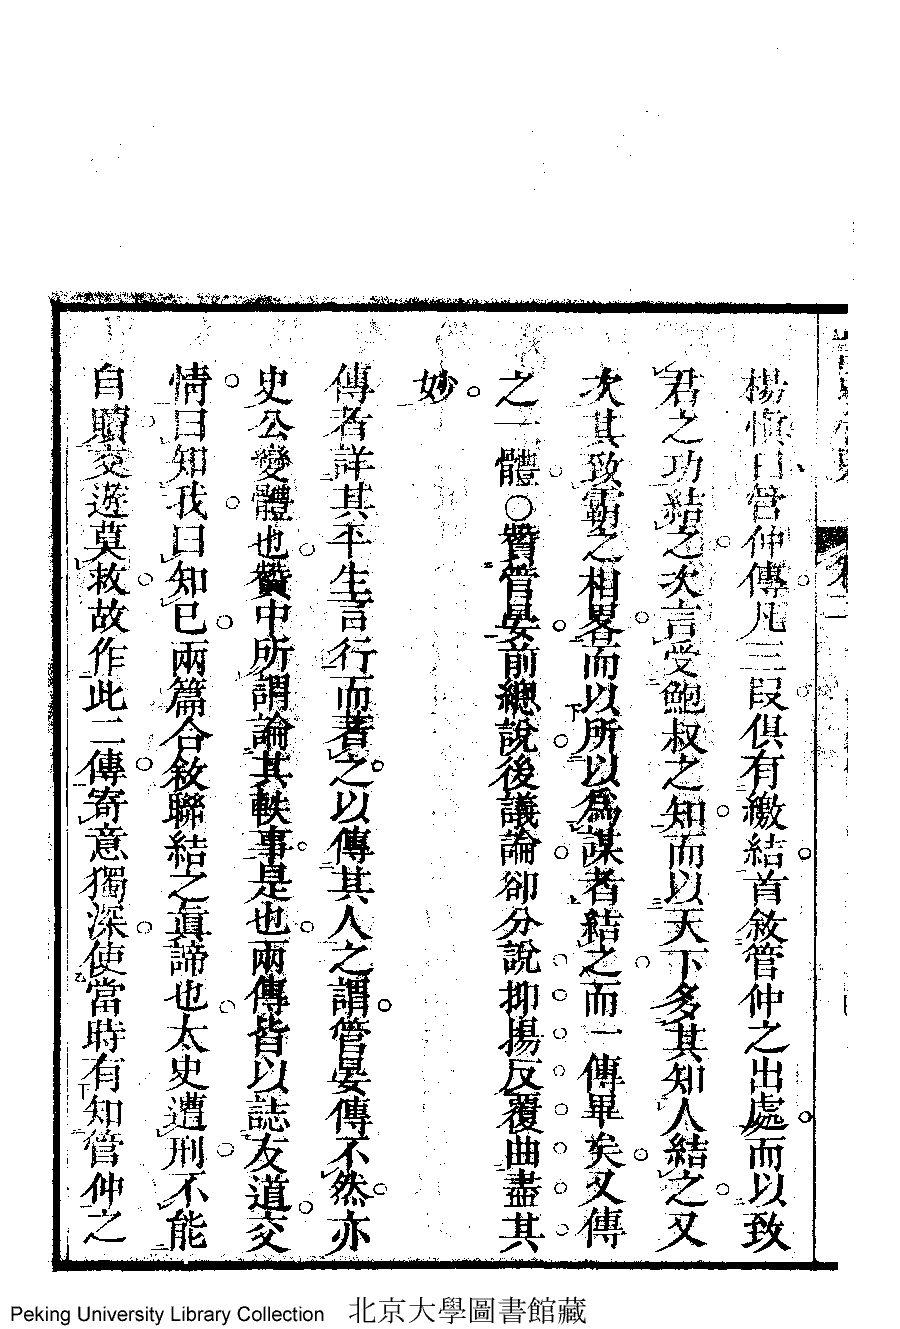 楊慎曰管仲傳凡三段俱有繳結首敘管仲之出處而以致
君之功結之次言受鮑叔之知而以天下多其知人結之又
次其致霸之相畧而以所以爲謀者結之而一傳畢矣又傳
之一體○贊管晏前總說後議論卻分說抑揚反覆曲盡其
妙
傳者詳其平生言行而著之以傳其人之謂管晏傳不然亦
史公變體也贊中所謂論其軼事是也兩傳皆以誌友道交
情曰知我曰知已兩篇合敘聯結之眞諦也太史遭刑不能
自贖交遊莫救故作此二傳寄意獨深使當時有知管仲之
Peking University Library Collection 北京大學圖書館藏